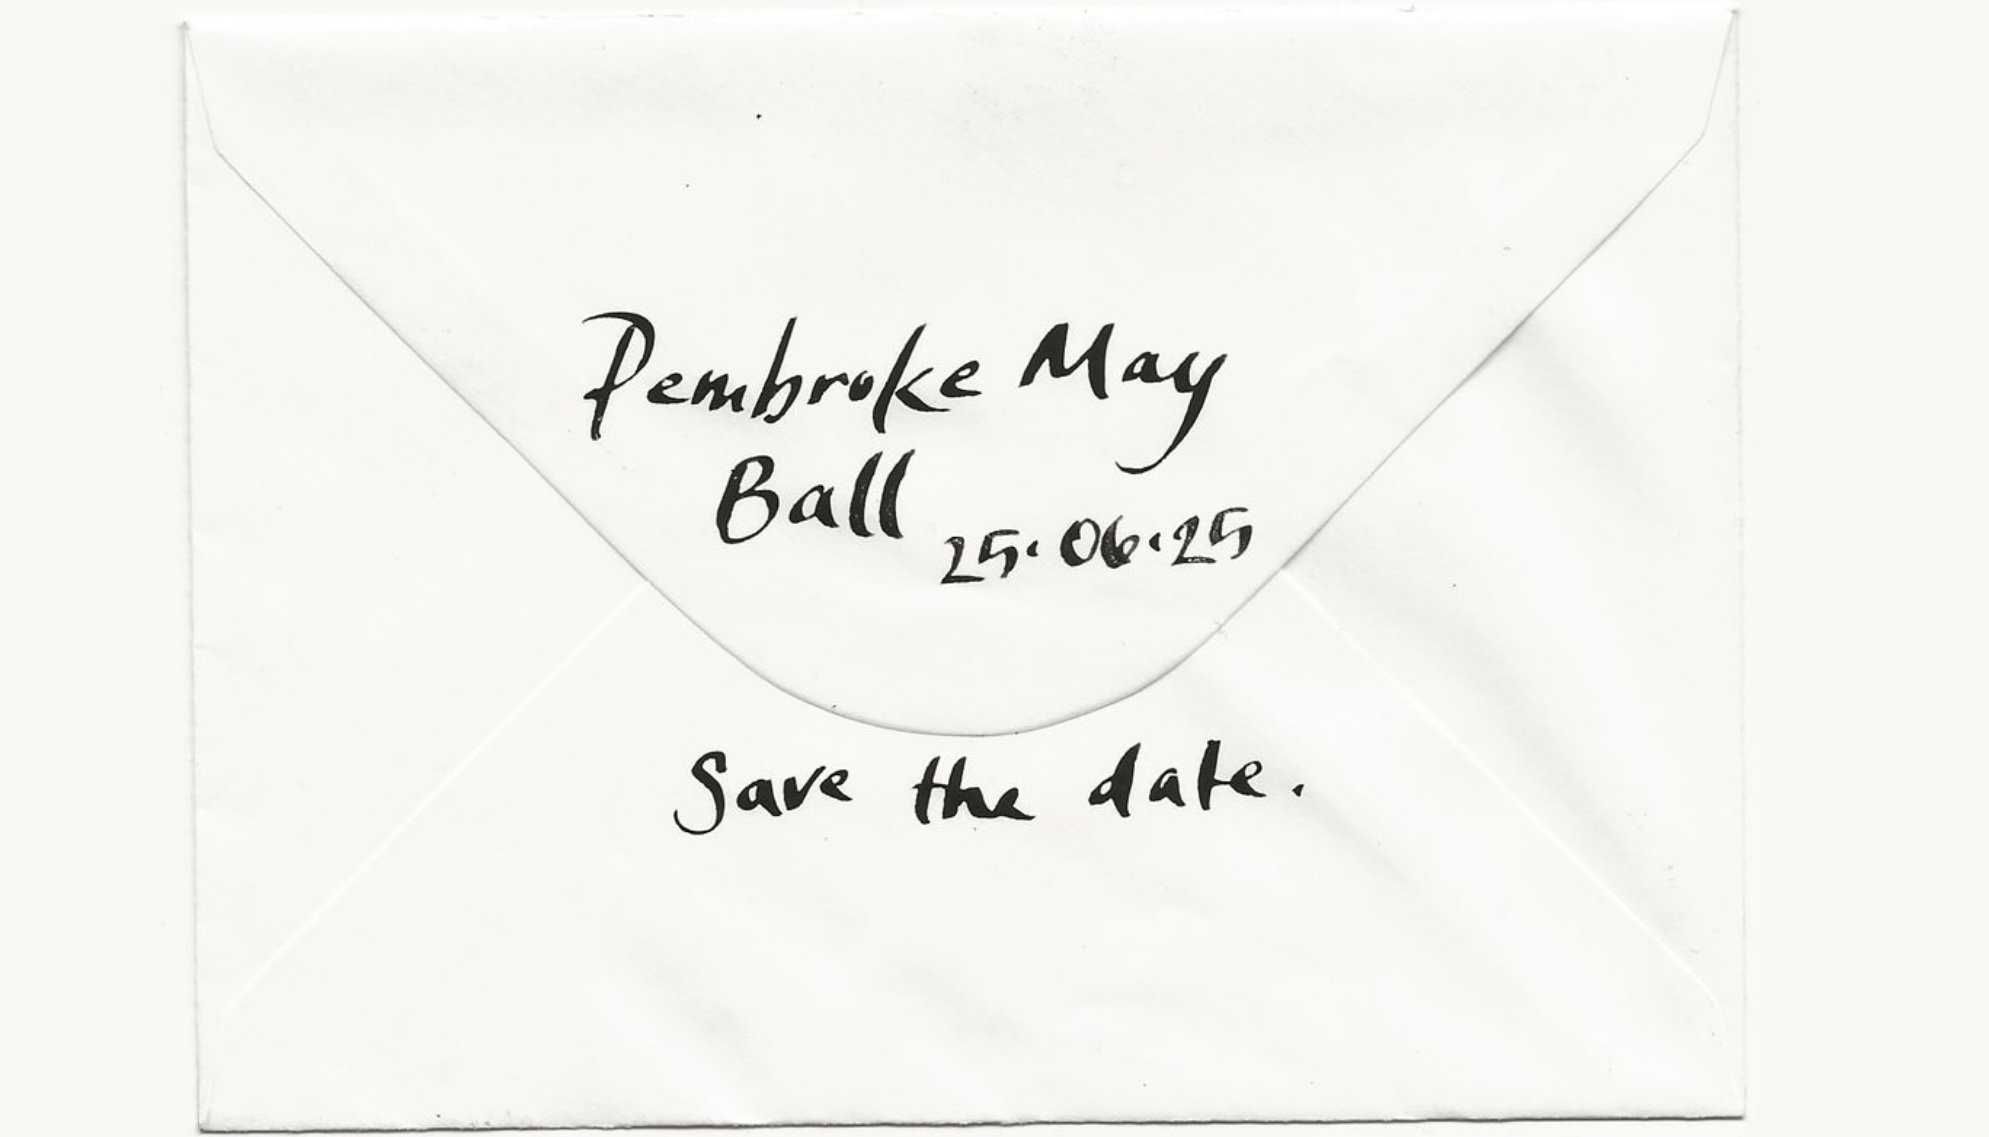 Pembroke May
Ball 25.06.25
Save the date.